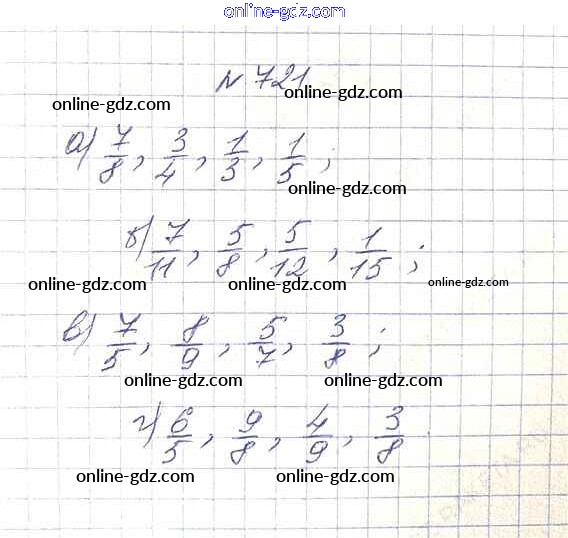 online-gdz.com
№ 721
online-gdz.com online-gdz.com
а) 7/8, 3/4, 1/3, 1/5;
online-gdz.com
б) 7/11, 5/8, 5/12, 1/15;
online-gdz.com online-gdz.com online-gdz.com
в) 7/5, 8/9, 5/7, 3/8;
online-gdz.com online-gdz.com
г) 6/5, 9/8, 4/9, 3/8
online-gdz.com online-gdz.com